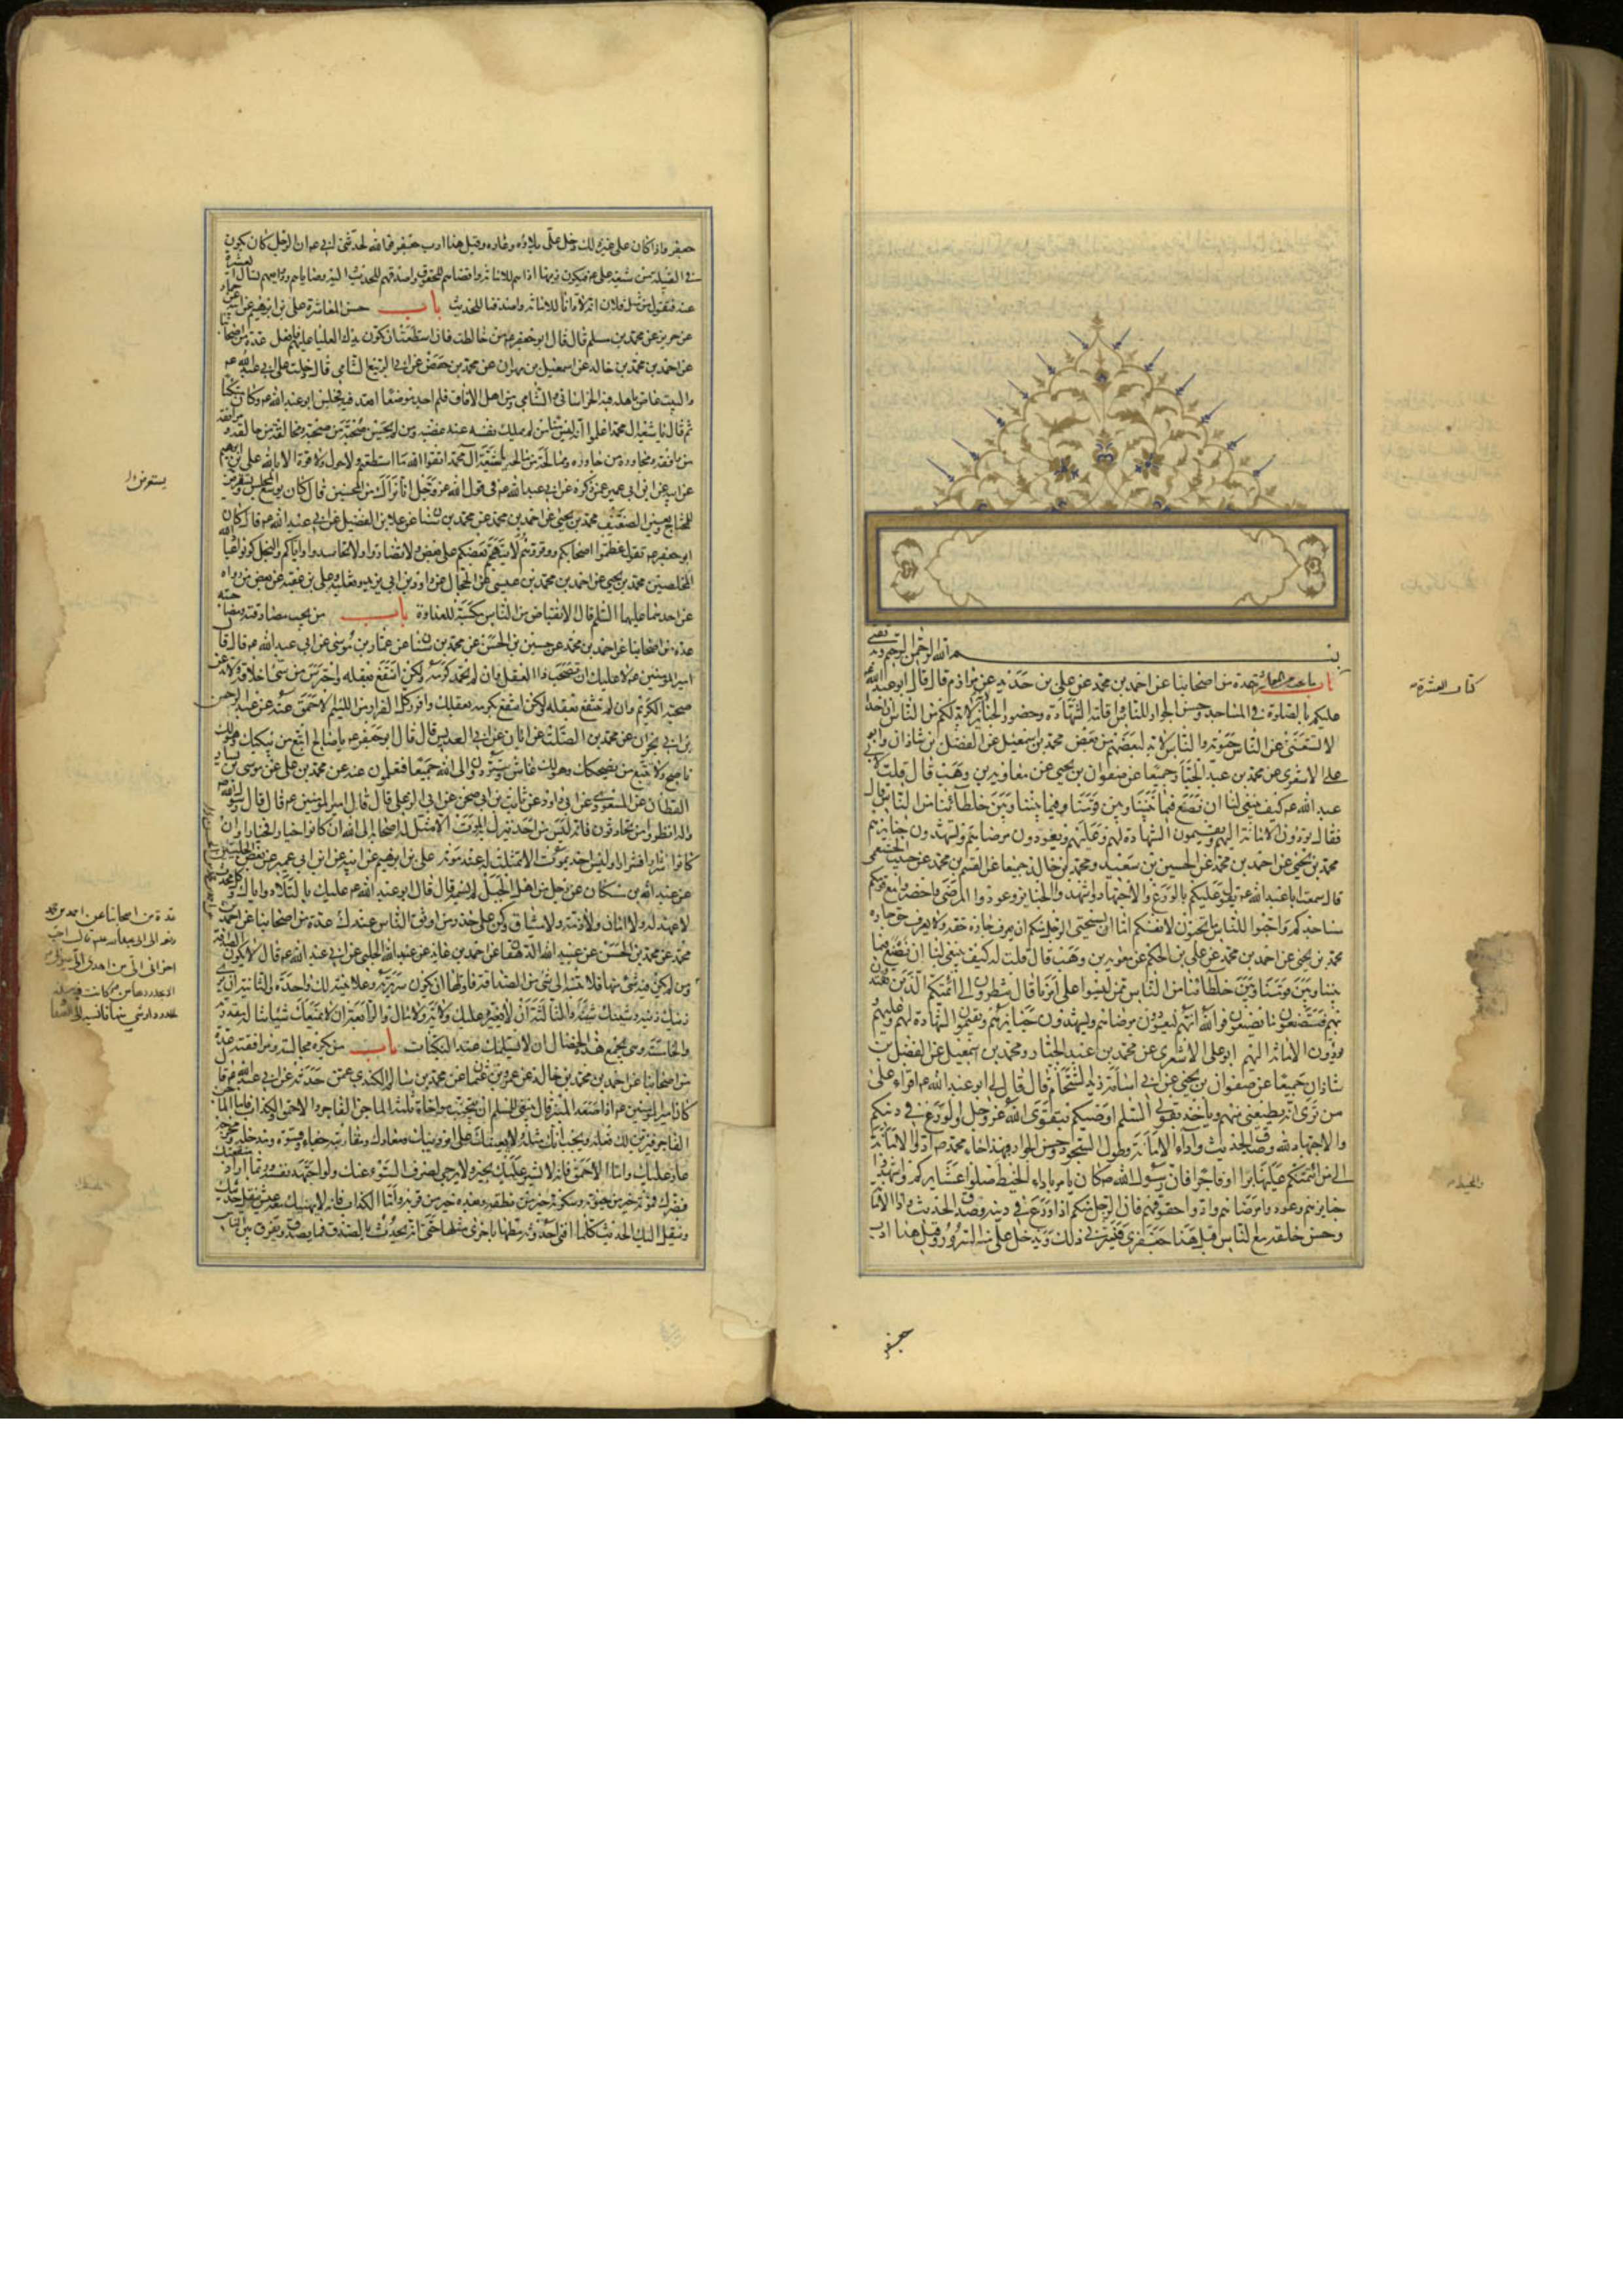 بسم الله الرحمن الرحيم وبه نستعين
باب عدة من اصحابنا عن احمد بن محمد عن علي بن حديد عن مرازم قال قال ابو عبد الله
عليكم بالصلوة في المساجد وحسن الجوار للناس واقامة الشهادة وحضور الجنائز انه لا بد لكم من الناس ان احدا
لا يستغنى عن الناس حيوته والناس لا بد لبعضهم من بعض محمد بن اسمعيل عن الفضل بن شاذان وابو
علي الاشعري عن محمد بن عبد الجبار جميعا عن صفوان بن يحيى عن معاوية بن وهب قال قلت لابي
عبد الله ع كيف ينبغي لنا ان نصنع فيما بيننا وبين قومنا وفيما بيننا وبين خلطائنا من الناس قال
فقال تؤدون الامانة اليهم وتقيمون الشهادة لهم وعليهم وتعودون مرضاهم وتشهدون جنايزهم
محمد بن يحيى عن احمد بن محمد عن الحسين بن سعيد ومحمد بن خالد جميعا عن القسم بن محمد عن حبيب الخثعمي
قال سمعت ابا عبد الله ع يقول عليكم بالورع والاجتهاد واشهدوا الجنايز وعودوا المرضى واحضروا مع قومكم
مساجدكم واحبوا للناس ما تحبون لانفسكم اما يستحيى الرجل منكم ان يعرف جاره حقه ولا يعرف حق جاره
محمد بن يحيى عن احمد بن محمد عن علي بن الحكم عن معوية بن وهب قال قلت له كيف ينبغي لنا ان نصنع فيما
بيننا وبين قومنا وبين خلطائنا من الناس ممن ليسوا على امرنا قال تنظرون الى ائمتكم الذين تقتدون
بهم فتصنعون ما يصنعون فوالله انهم ليعودون مرضاهم ويشهدون جنايزهم ويقيمون الشهادة لهم وعليهم
ويؤدون الامانة اليهم ابو علي الاشعري عن محمد بن عبد الجبار ومحمد بن اسمعيل عن الفضل بن
شاذان جميعا عن صفوان بن يحيى عن ابي اسامة زيد الشحام قال قال لي ابو عبد الله ع اقراء على
من ترى انه يطيعني منهم وياخذ بقولي السلم اوصيكم بتقوى الله عز وجل والورع في دينكم
والاجتهاد لله وصدق الحديث واداء الامانة وطول السجود وحسن الجوار فبهذا جاء محمد ص ادوا الامانة
الى من ائتمنكم عليها برا او فاجرا فان رسول الله ص كان يامر باداء الخيط صلوا عشايركم واشهدوا
جنايزهم وعودوا مرضاهم وادوا حقوقهم فان الرجل منكم اذا ورع في دينه وصدق الحديث وادا الامانة
وحسن خلقه مع الناس قيل هذا جعفرى فيسرني ذلك ويدخل علي منه السرور وقيل هذا ادب
جعفر
كتاب العشرة
والمخيط
جعفر واذا كان على غير ذلك دخل علي بلاؤه وعاره وقيل هذا ادب جعفر فوالله لحدثني ابي ع ان الرجل كان يكون
في القبيلة من شيعة علي ع فيكون زينها اداهم للامانة واقضاهم للحقوق واصدقهم للحديث اليه وصاياهم وودايعهم تسال العشيرة
عنه فتقول من مثل فلان انه لادانا للامانة واصدقنا للحديث باب حسن المعاشرة علي بن ابرهيم عن ابيه عن حماد
عن حريز عن محمد بن مسلم قال قال ابو جعفر ع من خالطت فان استطعت ان تكون يدك العليا عليهم فافعل عدة من اصحابنا
عن احمد بن محمد بن خالد عن اسمعيل بن مهران عن محمد بن حفص عن ابي الربيع الشامي قال دخلت على ابي عبد الله ع
والبيت غاص باهله فيه الخراساني والشامي ومن اهل الافاق فلم اجد موضعا اقعد فيه فجلس ابو عبد الله ع وكان متكئا
ثم قال يا شيعة ال محمد اعلموا انه ليس منا من لم يملك نفسه عند غضبه ومن لم يحسن صحبة من صحبه ومخالقة من خالقه ومرافقة
من رافقه ومجاورة من جاوره وممالحة من مالحه يا شيعة ال محمد اتقوا الله ما استطعتم ولا حول ولا قوة الا بالله علي بن ابرهيم
عن ابيه عن ابن ابي عمير عمن ذكره عن ابي عبد الله ع في قول الله عز وجل انا نراك من المحسنين قال كان يوسع المجلس ويستقرض
للمحتاج ويعين الضعيف محمد بن يحيى عن احمد بن محمد عن محمد بن سنان عن علا بن الفضيل عن ابي عبد الله ع قال كان
ابو جعفر ع يقول عظموا اصحابكم ووقروهم ولا يتهجم بعضكم على بعض ولا تضاروا ولا تحاسدوا واياكم والبخل كونوا عباد الله
المخلصين محمد بن يحيى عن احمد بن محمد بن عيسى عن الحجال عن داود بن ابي يزيد وثعلبة وعلي بن عقبة عن بعض من رواه
عن احدهما عليهما السلم قال الانقباض من الناس مكسبة للعداوة باب من يجب مصادقته ومصاحبته
عدة من اصحابنا عن احمد بن محمد عن حسين بن الحسن عن محمد بن سنان عن عمار بن موسى عن ابي عبد الله ع قال قال
امير المؤمنين ع لا عليك ان تصحب ذا العقل وان لم تحمد كرمه ولكن انتفع بعقله واحترس من سيئ اخلاقه ولا تدعن
صحبة الكريم وان لم تنتفع بعقله ولكن انتفع بكرمه بعقلك وافرر كل الفرار من اللئيم الاحمق عنه عن عبد الرحمن
بن ابي نجران عن محمد بن الصلت عن ابان عن ابي العديس قال قال ابو جعفر ع يا صالح اتبع من يبكيك وهو لك
ناصح ولا تتبع من يضحكك وهو لك غاش وستردون الى الله جميعا فتعلمون عنه عن محمد بن علي عن موسى بن يسار
القطان عن المسعودي عن ابي داود عن ثابت بن ابي صخر عن ابي الزعلى قال قال امير المؤمنين ع قال قال رسول الله ص
واله انظروا من تحادثون فانه ليس من احد ينزل به الموت الا مثل له اصحابه الى الله ان كانوا خيارا فخيارا وان
كانوا شرارا فشرارا وليس احد يموت الا تمثلت له عند موته علي بن ابرهيم عن ابيه عن ابن ابي عمير عن بعض الحلبيين
عن عبد الله بن مسكان عن رجل من اهل الجبل لم يسمه قال قال ابو عبد الله ع عليك بالتلاد واياك وكل محدث
لا عهد له ولا امان ولا ذمة ولا ميثاق وكن على حذر من اوثق الناس عندك عدة من اصحابنا عن احمد بن
محمد عن محمد بن الحسن عن عبيد الله الدهقان عن احمد بن عايذ عن عبيد الله الحلبي عن ابي عبد الله ع قال لا يكون الصداقة
ومن لم يكن فيه شيء منها فلا تنسبه الى شيء من الصداقة فاولها ان تكون سريرته وعلانيته لك واحدة والثانية ان يرى
زينك زينه وشينك شينه والثالثة ان لا تغيره عليك ولاية ولا مال والرابعة ان لا يمنعك شيئا تناله مقدرته
والخامسة وهي تجمع هذه الخصال ان لا يسلمك عند النكبات باب من يكره مجالسته ومرافقته عدة
من اصحابنا عن احمد بن محمد بن خالد عن عمرو بن عثمان عن محمد بن سالم الكندي عمن حدثه عن ابي عبد الله ع قال
كان امير المؤمنين ع اذا صعد المنبر قال ينبغي للمسلم ان يجتنب مواخاة ثلثة الماجن الفاجر والاحمق والكذاب فاما الماجن
الفاجر فيزين لك فعله ويحب انك مثله ولا يعينك على امر دينك ومعادك ومقاربته جفاء وقسوة ومدخله ومخرجه
عار عليك واما الاحمق فانه لا يشير عليك بخير ولا يرجى لصرف السوء عنك ولو اجهد نفسه وربما اراد منفعتك
فضرك فموته خير من حيوته وسكوته خير من نطقه وبعده خير من قربه واما الكذاب فانه لا يهنيك معه عيش ينقل حديثك
وينقل اليك الحديث كلما افنى احدوثة مطها باخرى مثلها حتى انه يحدث بالصدق فما يصدق ويفرق بين الناس
يستقرض
عدة من اصحابنا عن احمد بن محمد
رفعه الى ابي عبد الله ع قال احب
اخواني الي من اهدى الي عيوبي
الا بحدودها فمن كانت فيه هذه
الحدود او شيء منها فانسبه الى الصداقة